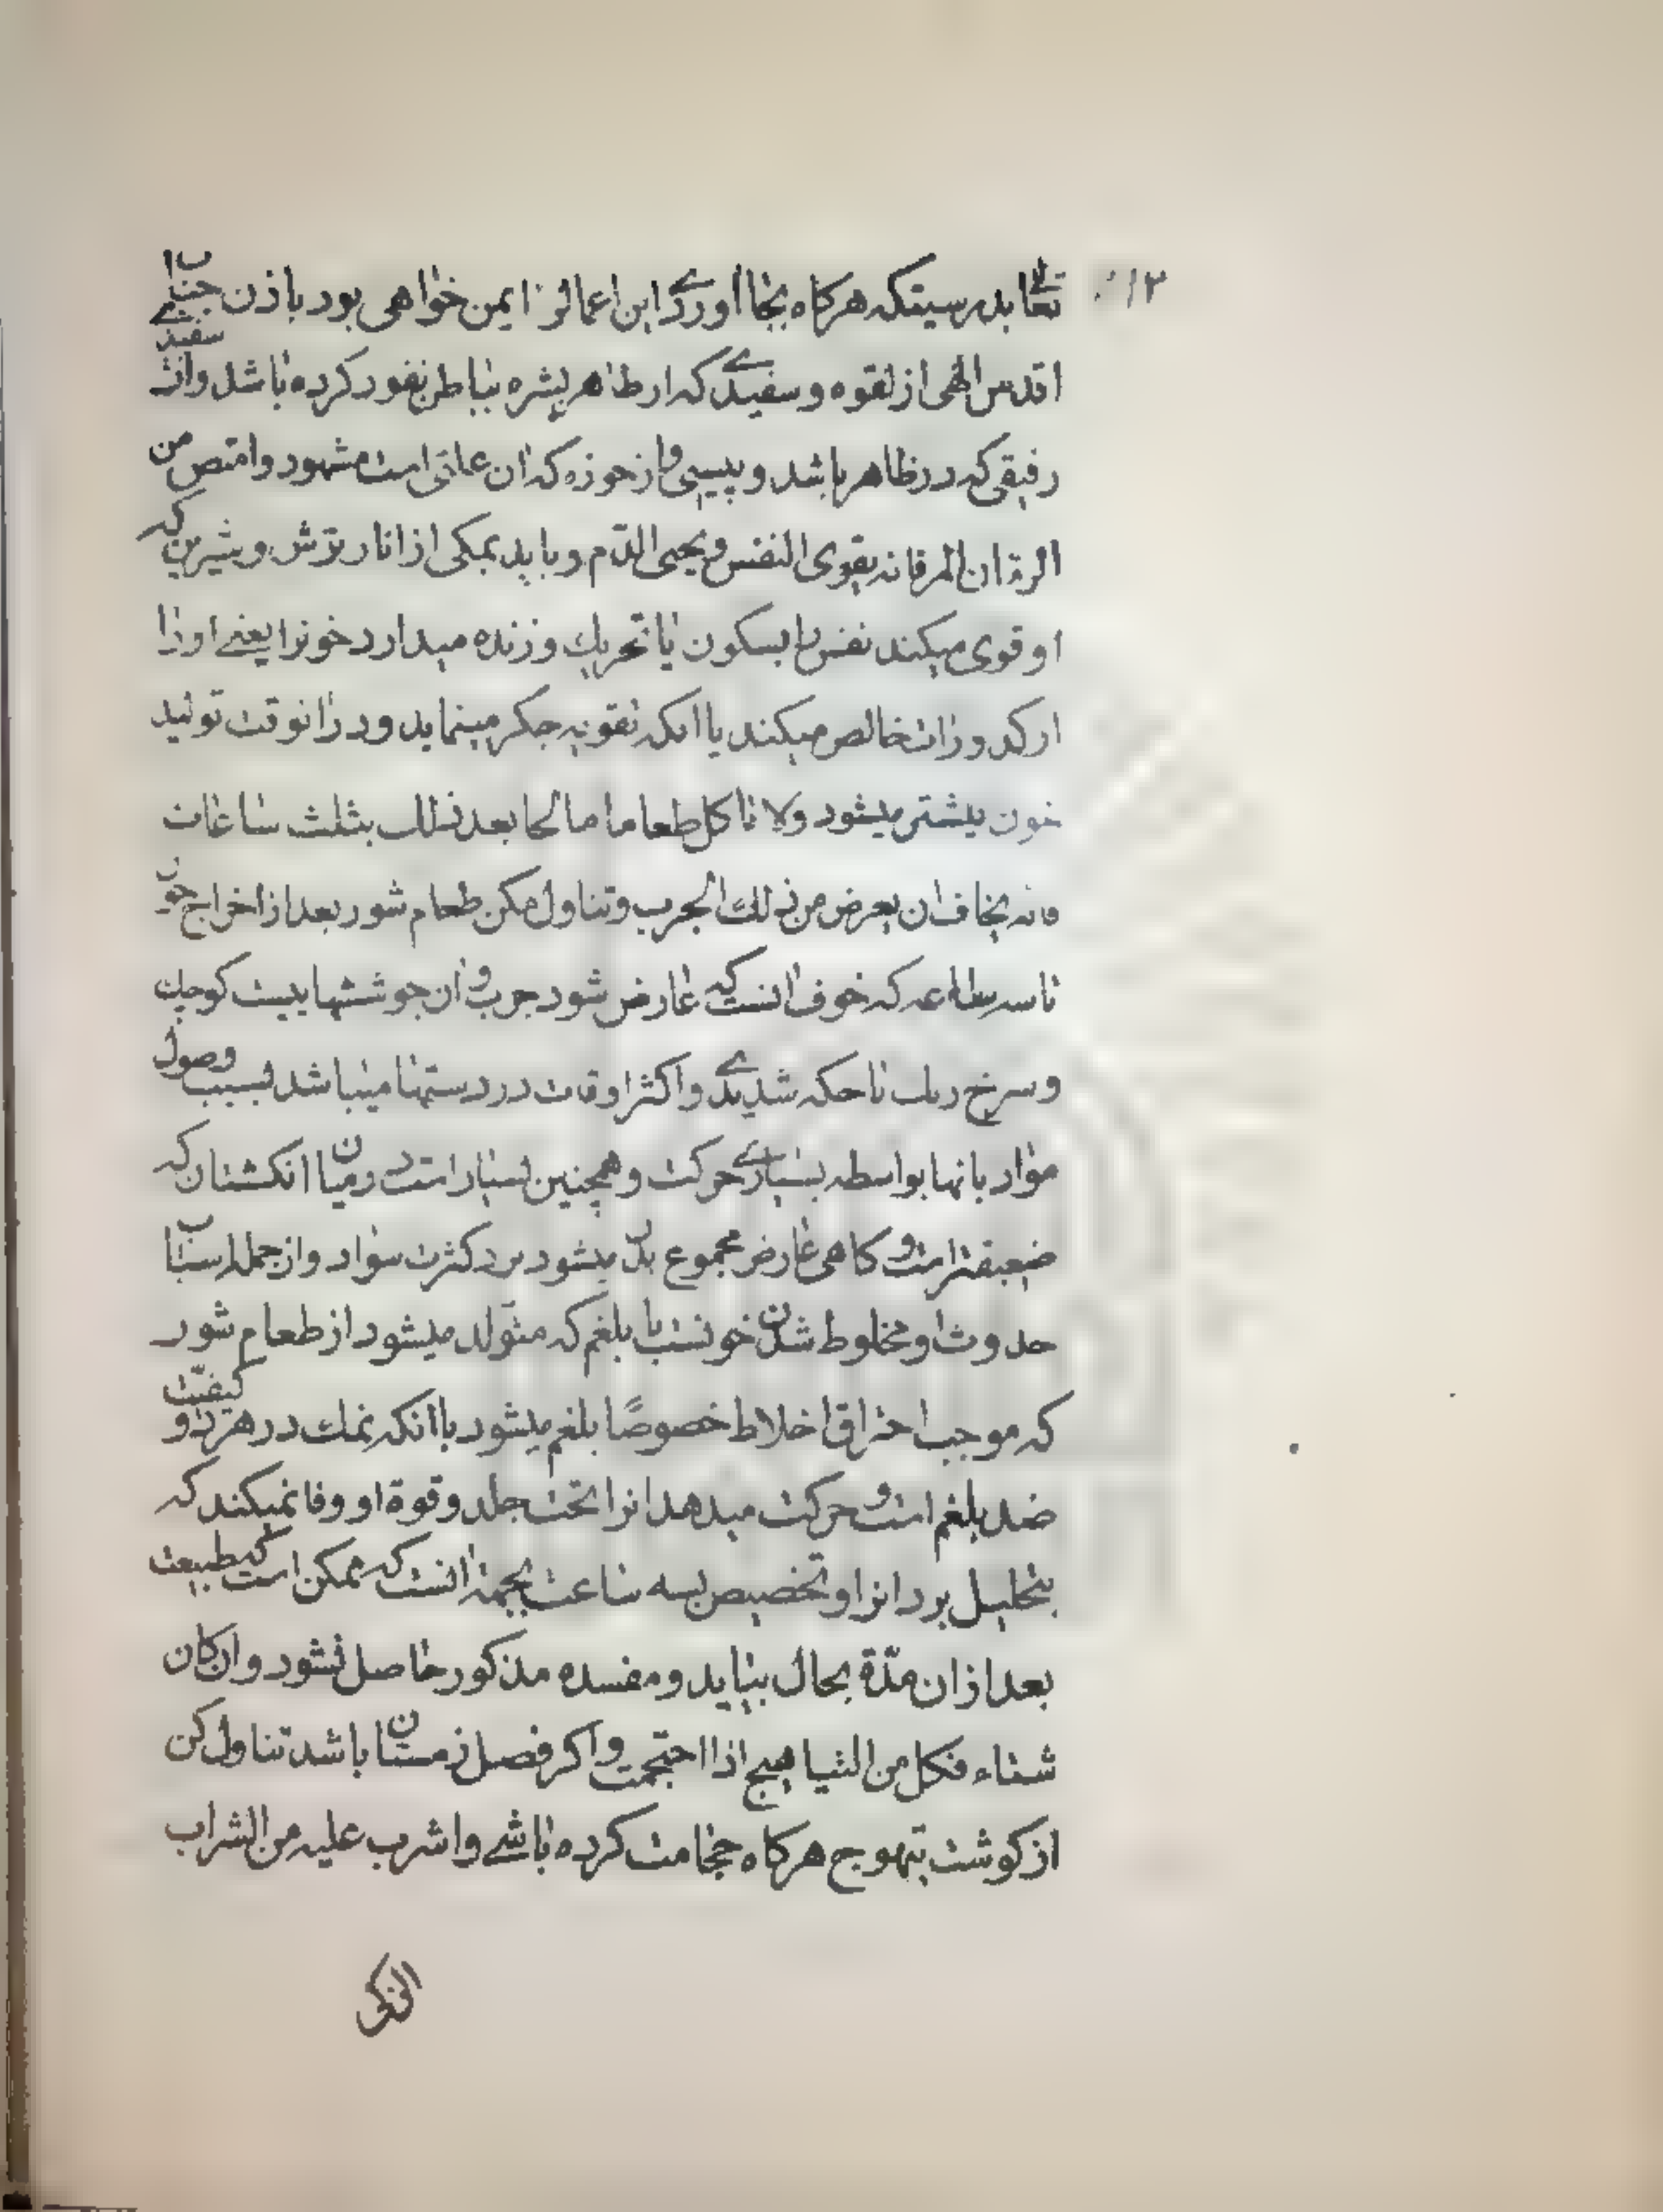 ۱۱۲
تعالی بدرسیتکه هرکاه بجا اوردی این اعمالرا ایمن خواهی بود باذن جناب
اقدس الهی از لقوه و سفیدی که از ظاهر بشره بباطن نفوذ کرده باشد و از سفیدی
رقیقی که در ظاهر باشد و پیسی و از خوره که ان علتی است مشهور و امتص من
الرمان المز فانه یقوی النفس و یحیی الدم و باید بمکی از انار ترش و شیرین که
او قوی میکند نفس را بسکون یا تحریك و زنده میدارد خونرا یعنی او را
از کدورات خالص میکند یا انکه تقویه جکر مینماید و در انوقت تولید
خون بیشتر میشود ولا تاکل طعاما مالحا بعد ذلك بثلث ساعات
فانه یخاف ان یعرض من ذلك الجرب و تناول مکن طعام شور بعد از اخراج خون
تا سه ساعه که خوف انست که عارض شود جرب و ان جوششهاییست کوچك
و سرخ رنك با حکه شدیدی و اکثر اوقات در دستها میباشد بسبب وصول
مواد بانها بواسطه بسیاری حرکت و همچنین بسیار است در میان انکشتان که
ضعیفتر است و کاهی عارض مجموع بدن میشود نزد کثرت مواد و از جمله اسباب
حدوث او مخلوط شدن خونست با بلغم که متولد میشود از طعام شور
که موجب احتراق اخلاط خصوصًا بلغم میشود باانکه نمك در هر دو کیفیت
ضد بلغم است و حرکت میدهد انرا تحت جلد و قوة او وفا نمیکند که
بتحلیل برد انرا و تخصیص بسه ساعت بجهة انست که ممکن است که طبیعت
بعد از ان مدّة بحال بیاید و مفسده مذکور حاصل نشود و ان کان
شتاء فکل من الطیاهیج اذا احتجمت و اکر فصل زمستان باشد تناول کن
از کوشت تیهوج هرکاه حجامت کرده باشی و اشرب علیه من الشراب
الذکی